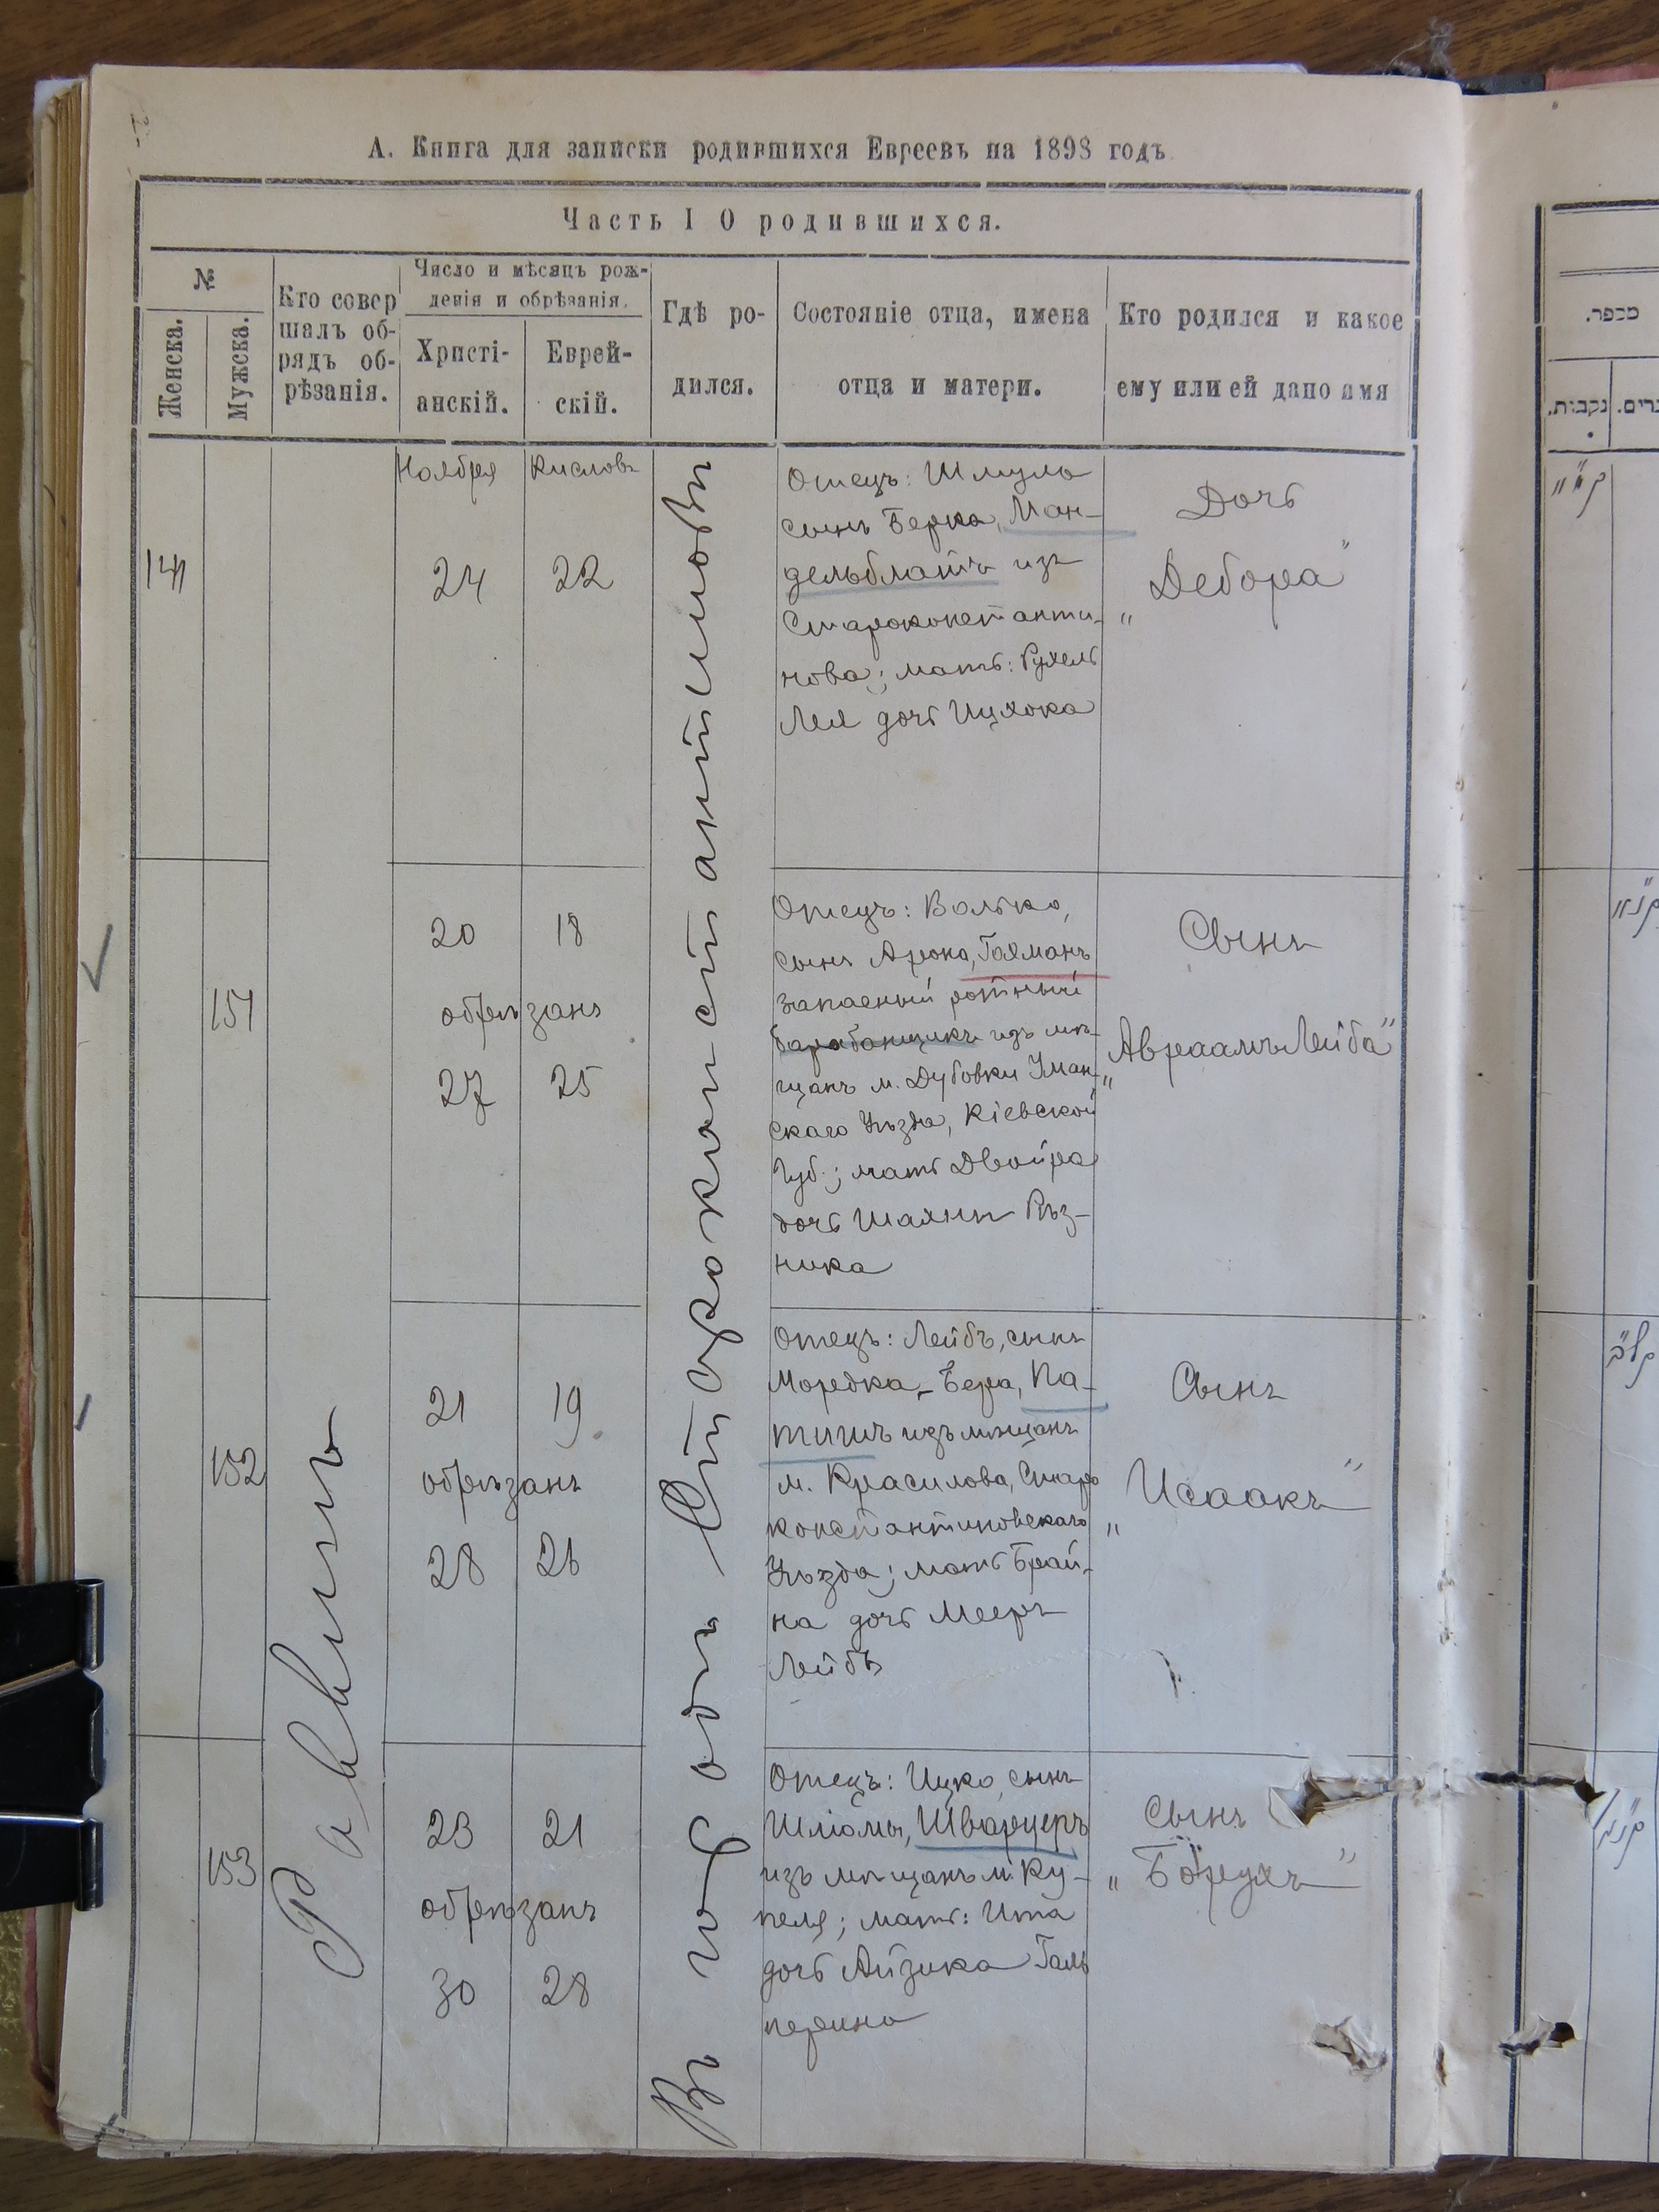 А. Книга для записки родившихся Евреевъ на 1898 годъ
Часть I О родившихся.
№
Женска.
Мужска.
Кто совер
шалъ об-
рядъ об-
рѣзанія.
Число и мѣсяцъ рож-
денія и обрѣзанія.
Христі-
анскій.
Еврей-
скій.
Гдѣ ро-
дился.
Состояніе отца, имена
отца и матери.
Кто родился и какое
ему или ей дано имя
Раввинъ
Въ городѣ Староконстантиновѣ
Ноября
Кисловъ
24
22
Отецъ: Шмуль
сынъ Берка, Ман-
дельблатъ изъ
Староконстанти-
нова; мать: Рухель
Лея дочь Ицхока
Дочь
„Дебора"
151
20
18
обрѣзанъ
27
25
Отецъ: Волько,
сынъ Арона, Гахманъ
запасный ротный
барабанщикъ изъ мѣ-
щанъ м. Дубовки Уман-
скаго Уѣзда, Кіевской
Губ.; мать Двойра
дочь Шахны Рѣз-
ника
Сынъ
„Авраамъ Лейба"
152
21
19
обрѣзанъ
28
26
Отецъ: Лейбъ, сынъ
Мордка-Бера, Па-
тишъ изъ мѣщанъ
м. Красилова, Старо
константиновскаго
Уѣзда; мать Брай-
на дочь Меера
Лейбы
Сынъ
„Исаакъ"
153
23
21
обрѣзанъ
30
28
Отецъ: Ицко, сынъ
Шліомы, Шварцеръ
изъ мѣщанъ м. Ку-
пеля; мать: Ита
дочь Айзика Галь
перина
Сынъ
„Борухъ"
מספר.
נקבות.